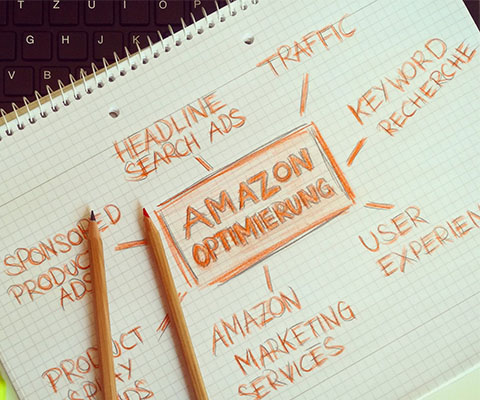 T Z U I O P
G H J K L
V B N M
TRAFFIC
HEADLINE
SEARCH ADS
KEYWORD
RECHERCHE
AMAZON
OPTIMIERUNG
SPONSORED
ADS
USER
AMAZON
MARKETING
SERVICES
PRODUCT